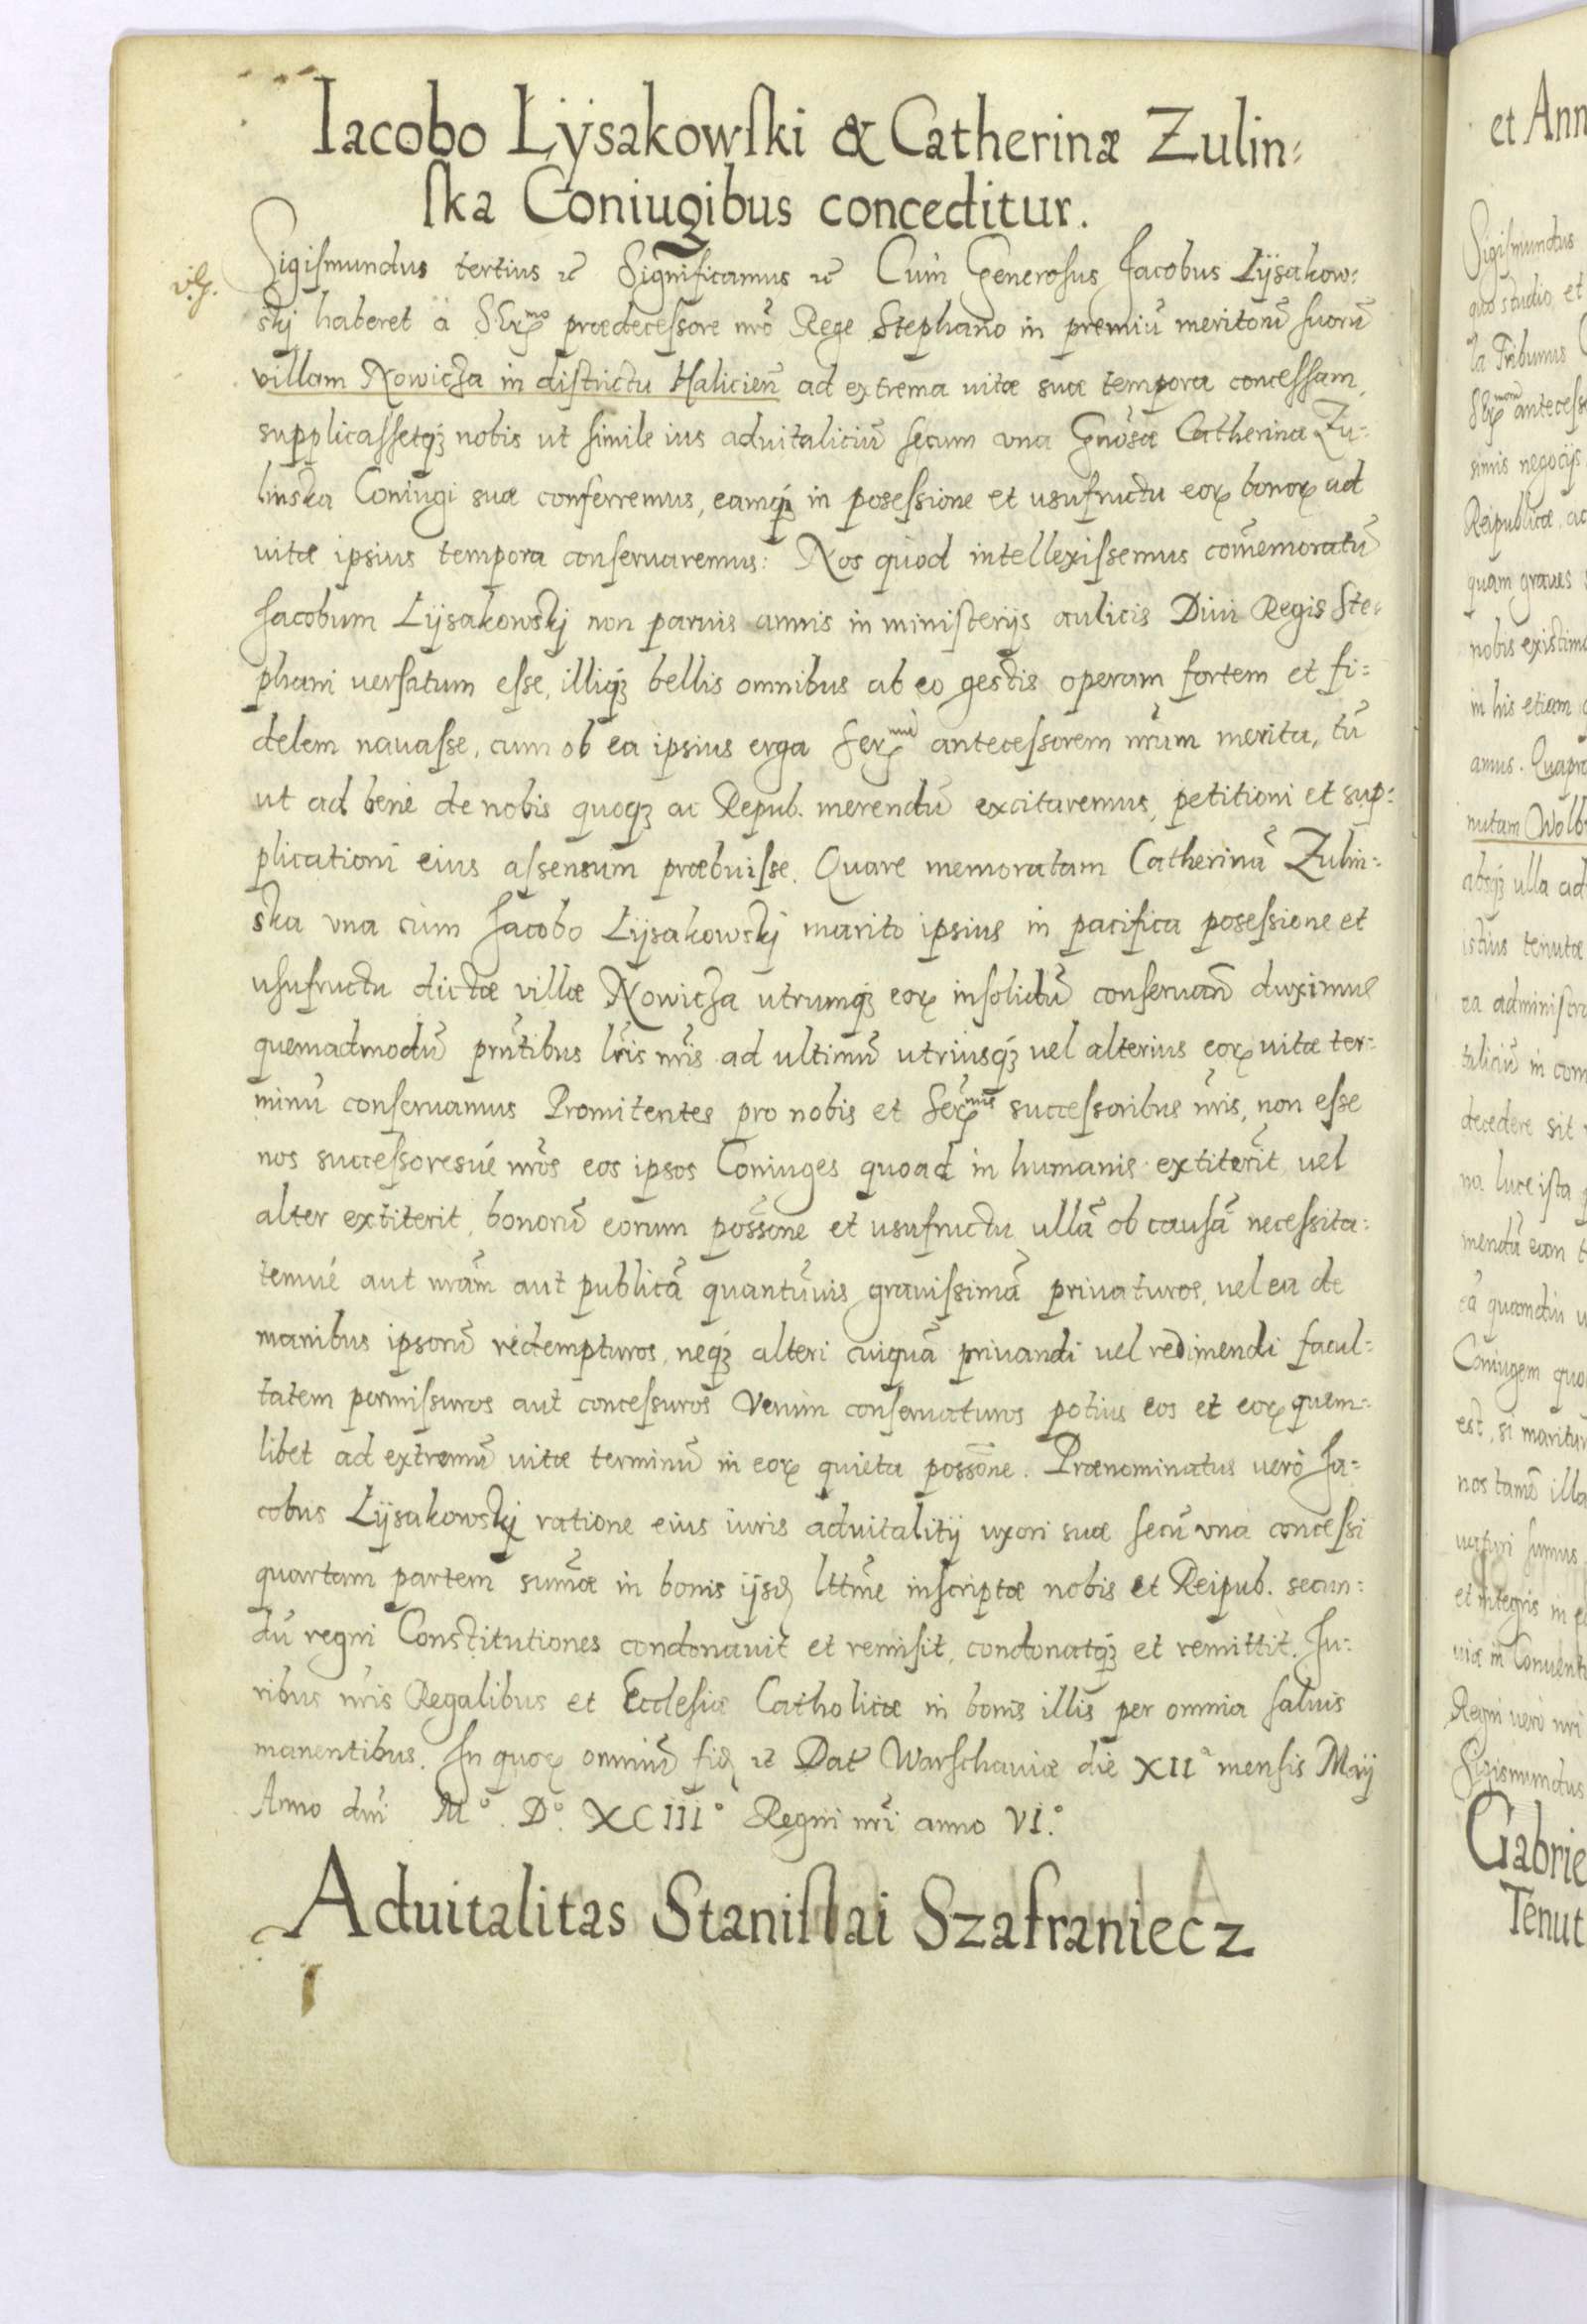 Iacobo Lÿsakowſki & Catherinæ Zulin=
ſka Coniugibus conceditur.
Sigiſmundus tertius ꝛc̄ Significamus ꝛc̄ Cum Generoſus Jacobus Lÿsakow:
skj haberet à Ser̄mo prædeceſsore nr̄o Rege Stephano in premiū meritorū ſuorū
villam Nowicza in diſtrictu Halicien̄ ad extrema uitæ suæ tempora conceſsam,
supplicaſsetqꝫ nobis ut ſimile ius aduitaliciū ſecum vna Gn̄osæ Catherinæ Zu=
linska Coniugi suæ conferremus, eamqꝫ in poseſsione et usufructu eoꝝ bonoꝝ ad
uitæ ipsius tempora conſeruaremus: Nos quod intellexiſsemus com̄emoratū
Jacobum Lÿsakowskj non paruis annis in miniſterijs aulicis Diui Regis Ste=
phani uerſatum eſse, illiqꝫ bellis omnibus ab eo gestis operam fortem et fi=
delem nauaſse, cum ob ea ipsius erga Ser̄mū anteceſsorem nr̄um merita, tū
ut ad bene de nobis quoqꝫ ac Repub. merendū excitaremus, petitioni et sup=
plicationi eius aſsensum præbuiſse. Quare memoratam Catherinā Zulin=
ska vna cum Jacobo Lÿsakowskj marito ipsius in pacifica poseſsione et
uſufructu dictæ villæ Nowicza utrumqꝫ eoꝝ inſolidū conſeruan̄ duximus
quemadmodū prn̄tibus lr̄is nr̄is ad ultimū utriusqꝫ uel alterius eoꝝ uitæ ter=
minū conſeruamus Promitentes pro nobis et Ser̄mis succeſsoribus nr̄is, non eſse
nos succeſsoresué nr̄os eos ipsos Coniuges quoad in humanis extiterīt uel
alter extiterit, bonorū eorum poſs̄one et usufructu ullā ob cauſā neceſsita=
temué aut nr̄am aut publicā quantūuis grauiſsimā priuaturos, uel ea de
manibus ipsorū redempturos, neqꝫ alteri cuiquā priuandi uel redimendi facul=
tatem permiſsuros aut conceſsuros Verum conſeruaturos potius eos et eoꝝ quem=
libet ad extremū uitæ terminū in eoꝝ quieta poſs̄one. Prænominatus uero Ja=
cobus Lÿsakowskj ratione eius iuris aduitalitij uxori suæ ſecū vna conceſsi
quartam partem sum̄æ in bonis ijsd lttm̄e inſcriptæ nobis et Reipub. secun=
dū regni Constitutiones condonauit et remiſit, condonatqꝫ et remittit. Ju=
ribus nr̄is Regalibus et Eccleſiæ Catholicæ in bonis illis per omnia ſaluis
manentibus. In quoꝝ omniū fid ꝛc̄ Dat̄ Warſchauiæ die XII mensis Maij
Anno dn̄i M° D° XCIII° Regni nr̄i anno VI.°
Aduitalitas Staniſlai Szafraniecz
et Ann
Sigiſmundus
quo studio, et
la Tribunus
anteceſs
simis negocijs
Reipublicæ, ac
quam graues
nobis existim
in his etiam
amus. Quapro
nutam Wolb
absqꝫ ulla ad
istius tenutæ
ea adminiſtr
talitiū in com
decedere sit
na luce iſta
mendū eam
ea quamdiu u
Coniugem quo
est, si maritu
nos tamē illa
uaturi ſumus
et integris in
uiæ in Conuent
Regni uero nr̄i
Sigismundus
Gabrie
Tenut